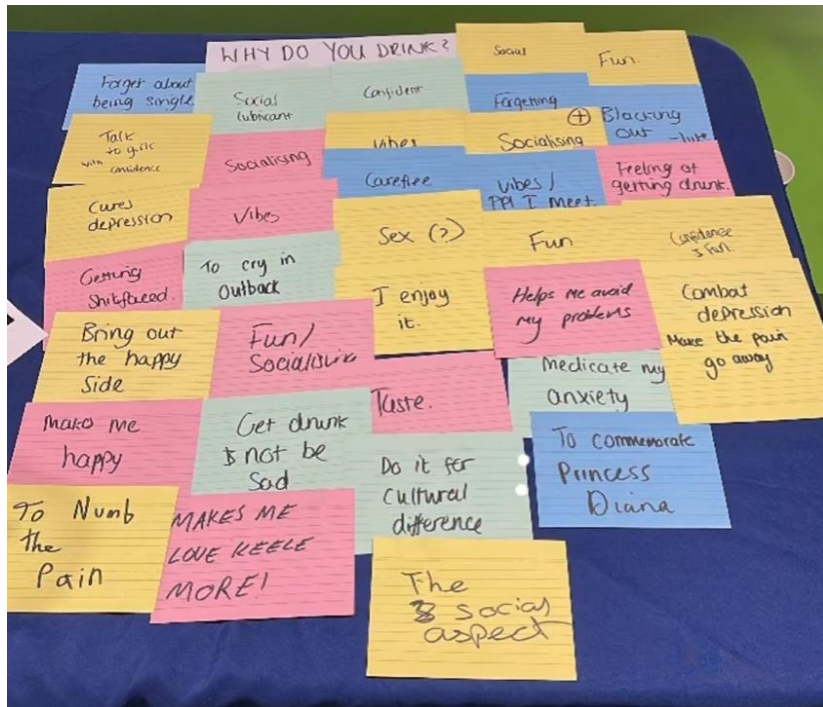 WHY DO YOU DRINK?
Social
Fun.
Forget about
being single
Social
lubricant
Confident
Forgetting
Blacking
out
Talk
to girls
with confidence
Socialising
Vibes
+
Socialising
Carefree
Vibes/
PPl I meet.
Feeling of
getting drunk.
Cures
depression
Vibes
Sex (?)
Fun
Confidence
& Fun
Getting
Shitfaced.
To cry in
Outback
I enjoy
it.
Helps me avoid
my problems
Combat
depression
Make the pain
go away
Bring out
the happy
Side
Fun/
Socialising
Taste.
Medicate my
anxiety
Make me
happy
Get drunk
& not be
Sad
Do it for
cultural
difference
To commemorate
Princess
Diana
To Numb
the
Pain
MAKES ME
LOVE KEELE
MORE!
The
social
aspect